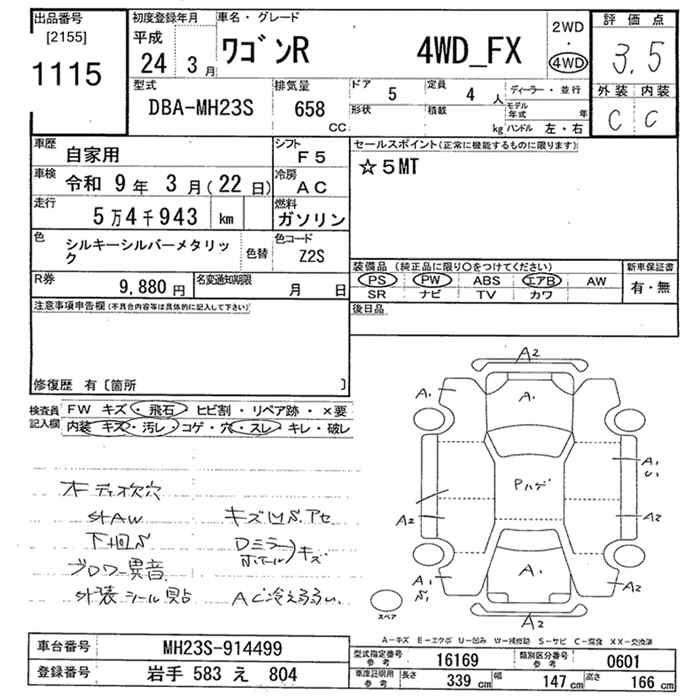 出品番号 初度登録年月 車名・グレード 評価点
[2155] 平成
1115 24 3月 ワゴンR 4WD_FX 2WD・4WD 3.5
型式 排気量 ドア 5 定員 4人 ディーラー・並行 外装 内装
DBA-MH23S 658 CC 形状 積載 kg モデル年式 年 ハンドル 左・右 C C
車歴 自家用 シフト F5 セールスポイント(正常に機能するものに限ります)
車検 令和 9年 3月(22日) 冷房 AC ☆5MT
走行 5万4千943 km 燃料 ガソリン
色 シルキーシルバーメタリック 色替 色コード Z2S
装備品(純正品に限り○をつけてください) 新車保証書
R券 9,880円 名変通知期限 月 日 PS PW ABS エアB AW 有・無
SR ナビ TV カワ
注意事項申告欄(不具合内容等は具体的に記入して下さい) 後日品
修復歴 有〔箇所 〕
検査員記入欄 FW キズ・飛石 ヒビ割・リペア跡・×要
内装 キズ・汚レ・コゲ・穴・スレ・キレ・破レ
オーディオ欠穴
外AW キズ凹S.アセ
下回S Dミラー ホイール)キズ
ブロワー異音
外装シール貼 AC冷え弱い
A2
A1 A1
A1
A1 U1
Pハゲ
A2 A2
A1 S1 A1 A2
A2
スペア
A-キズ E-エクボ U-凹み W-補修跡 S-サビ C-腐食 XX-交換済
車台番号 MH23S-914499 型式指定番号 参考 16169 類別区分番号 参考 0601
登録番号 岩手 583 え 804 車庫証明用 参考 長さ 339 cm 幅 147 cm 高さ 166 cm